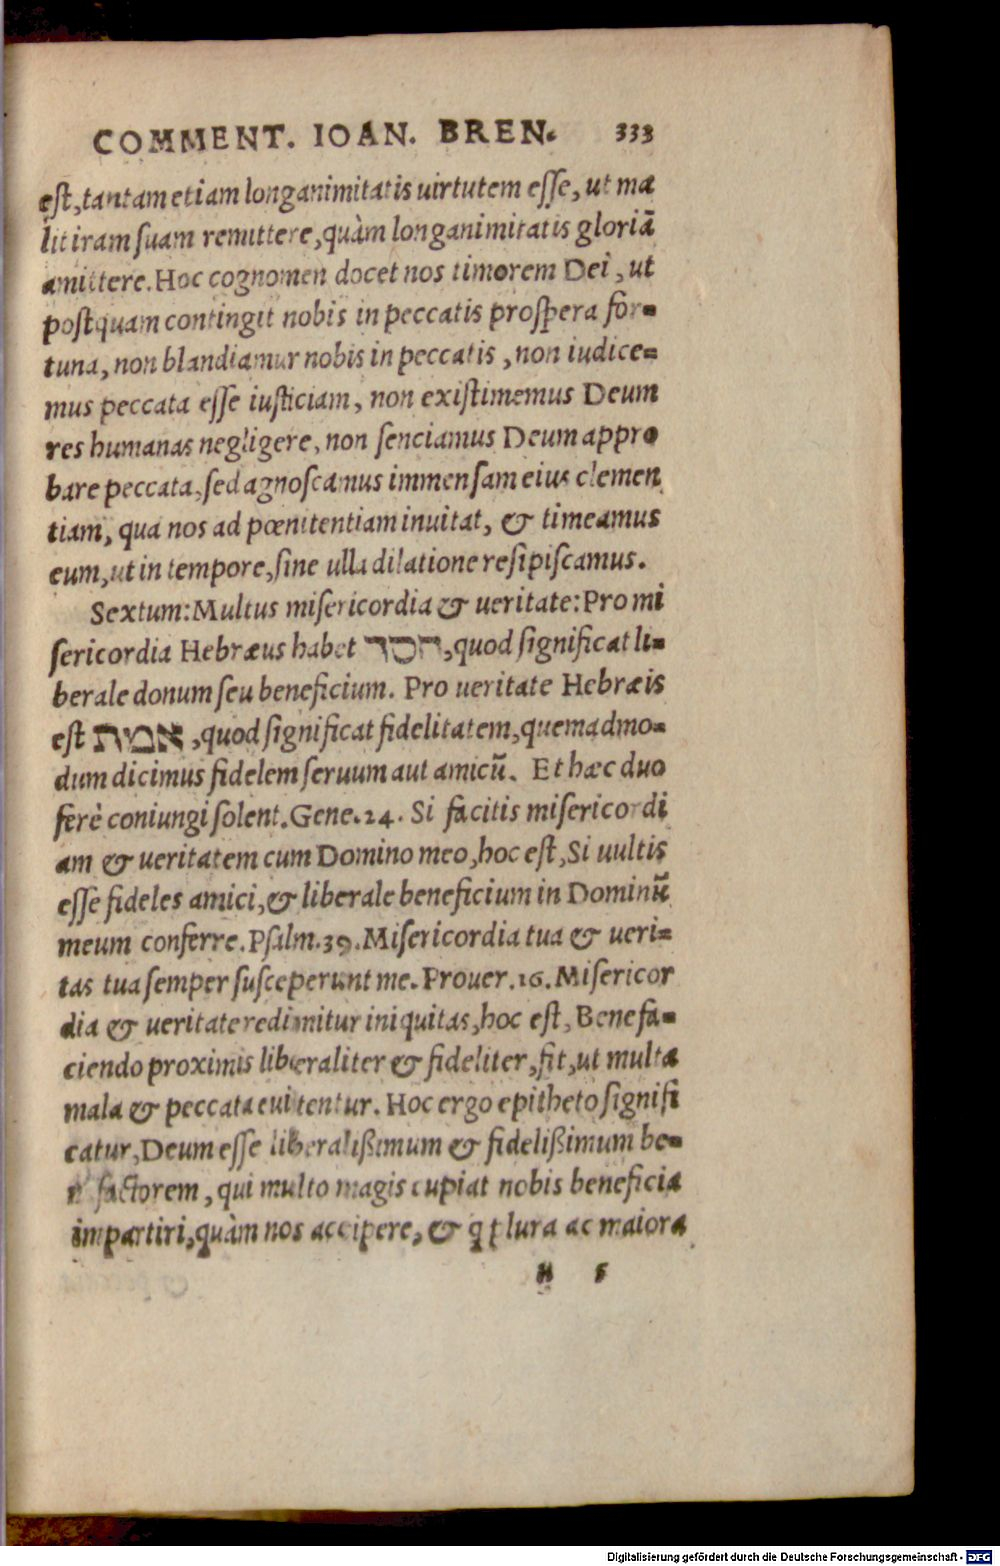 COMMENT. IOAN. BREN. 333
est, tantam etiam longanimitatis uirtutem esse, ut ma
lit iram suam remittere, quàm longanimitatis gloriā
amittere. Hoc cognomen docet nos timorem Dei, ut
postquam contingit nobis in peccatis prospera for=
tuna, non blandiamur nobis in peccatis, non iudice=
mus peccata esse iusticiam, non existimemus Deum
res humanas negligere, non senciamus Deum appro
bare peccata, sed agnoscamus immensam eius clemen
tiam, qua nos ad pœnitentiam inuitat, & timeamus
eum, ut in tempore, sine ulla dilatione resipiscamus.
Sextum: Multus misericordia & ueritate: Pro mi
sericordia Hebræus habet חסד, quod significat li=
berale donum seu beneficium. Pro ueritate Hebræis
est אמית, quod significat fidelitatem, quemadmo=
dum dicimus fidelem seruum aut amicū. Et hæc duo
ferè coniungi solent. Gene. 24. Si facitis misericordi
am & ueritatem cum Domino meo, hoc est, Si uultis
esse fideles amici, & liberale beneficium in Dominū
meum conferre. Psalm. 39. Misericordia tua & ueri=
tas tua semper susceperunt me. Prouer. 16. Misericor
dia & ueritate redimitur iniquitas, hoc est, Benefa=
ciendo proximis liberaliter & fideliter, fit, ut multa
mala & peccata euitentur. Hoc ergo epitheto signifi
catur, Deum esse liberalißimum & fidelißimum be=
factorem, qui multo magis cupiat nobis beneficia
impartiri, quàm nos accipere, & plura ac maiora
H 5
Digitalisierung gefördert durch die Deutsche Forschungsgemeinschaft - DFG